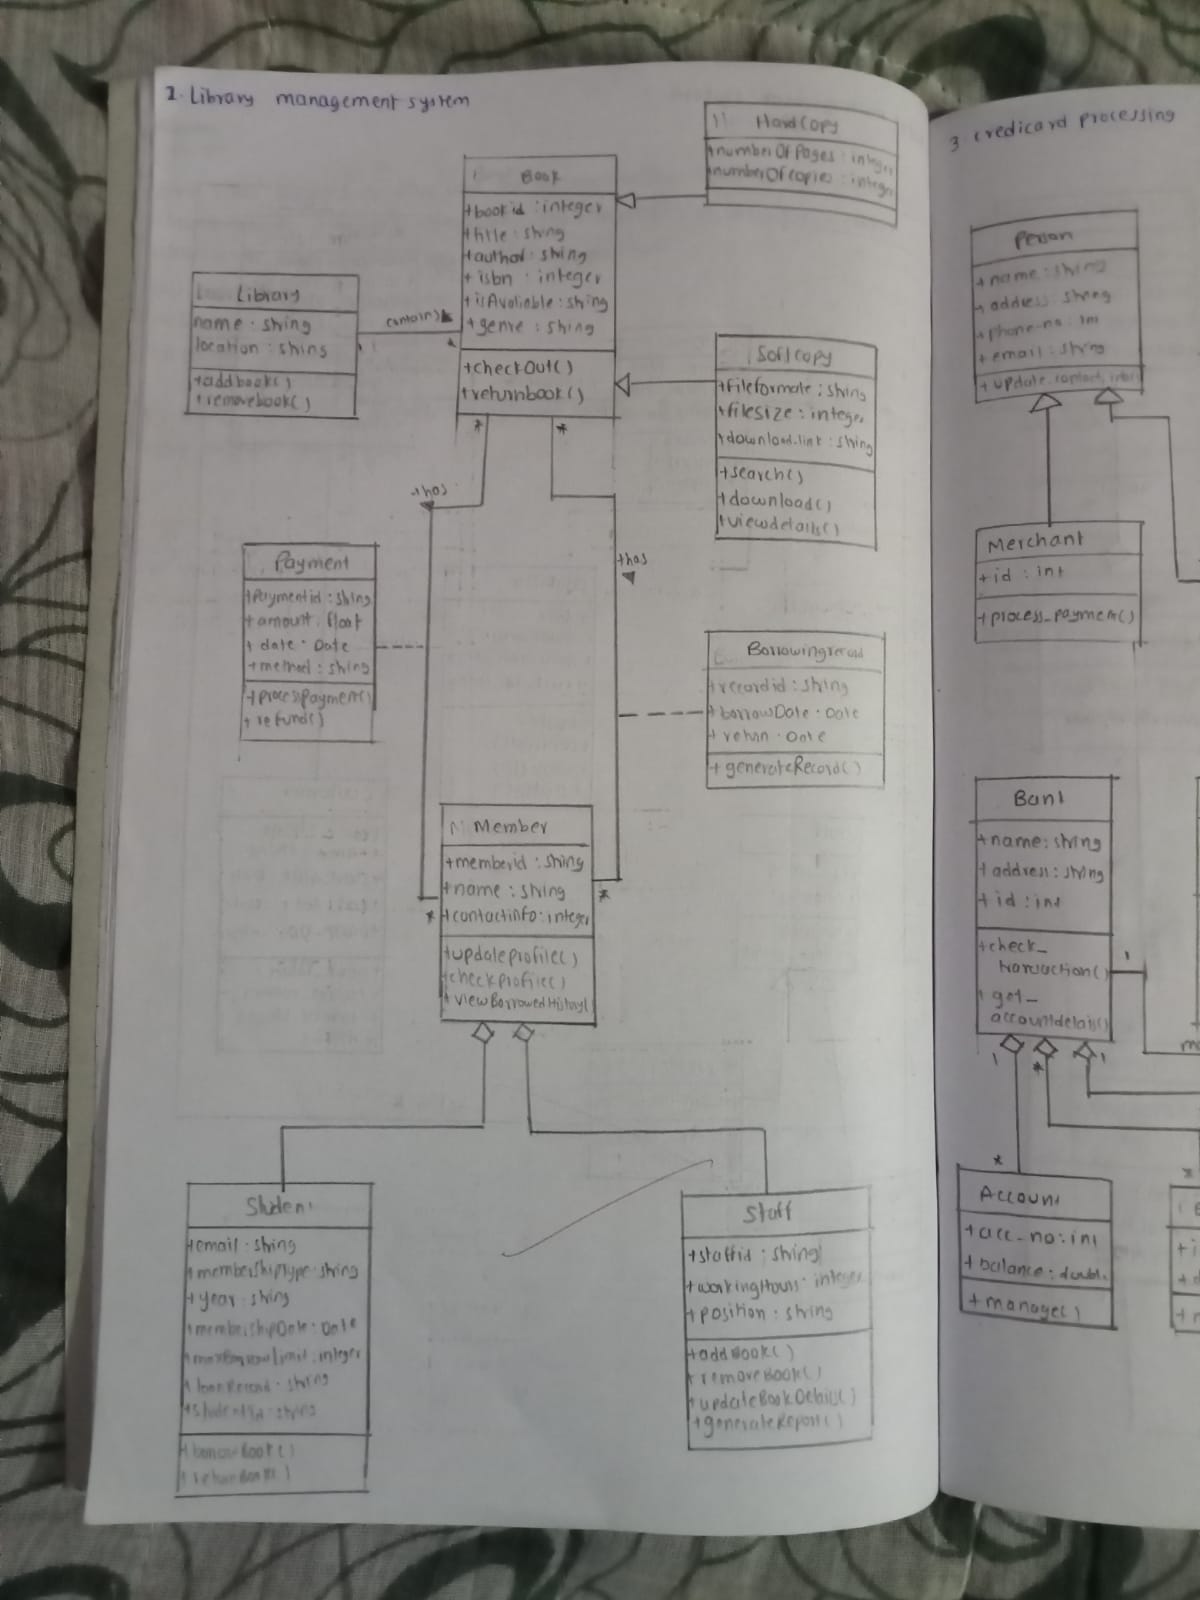 2. Library management system
HardCopy
+numberOfPages : integer
+numberOfcopies : integer
Book
+bookid : integer
+title : string
+author : string
+isbn : integer
+isAvaliable : string
+genre : string
+checkOut()
+returnbook()
Library
name : string
location : string
+addbook()
+removebook()
contains
1
*
Softcopy
+fileformate : string
+filesize : integer
+download.link : string
+search()
+download()
+viewdetails()
*
*
+has
+has
Payment
+Paymentid : string
+amount : float
+date : Date
+method : string
+processPayment()
+refund()
Borrowingrecord
+recordid : string
+borrowDate : Date
+return : Date
+generateRecord()
Member
+memberid : string
+name : string
+contactinfo : integer
+updateprofile()
+checkprofile()
+viewBorrowedHistory(
*
*
Student
+email : string
+membershipType : string
+year : string
+membershipDate : Date
+maxBorrowLimit : integer
+loanRecord : string
+studentId : string
+borrowBook()
+returnBook()
Staff
+staffid : string
+workingHours : integer
+position : string
+addBook()
+removeBook()
+updateBookDetails()
+generateReport()
3 credicard processing
Person
+name : string
+address : string
+phone-no : int
+email : string
+update-contact
Merchant
+id : int
+process_payment()
Bank
+name : string
+address : string
+id : int
+check_
transaction()
+get_
accountdetails()
1
1
*
1
*
*
Account
+acc_no : int
+balance : double
+manage()